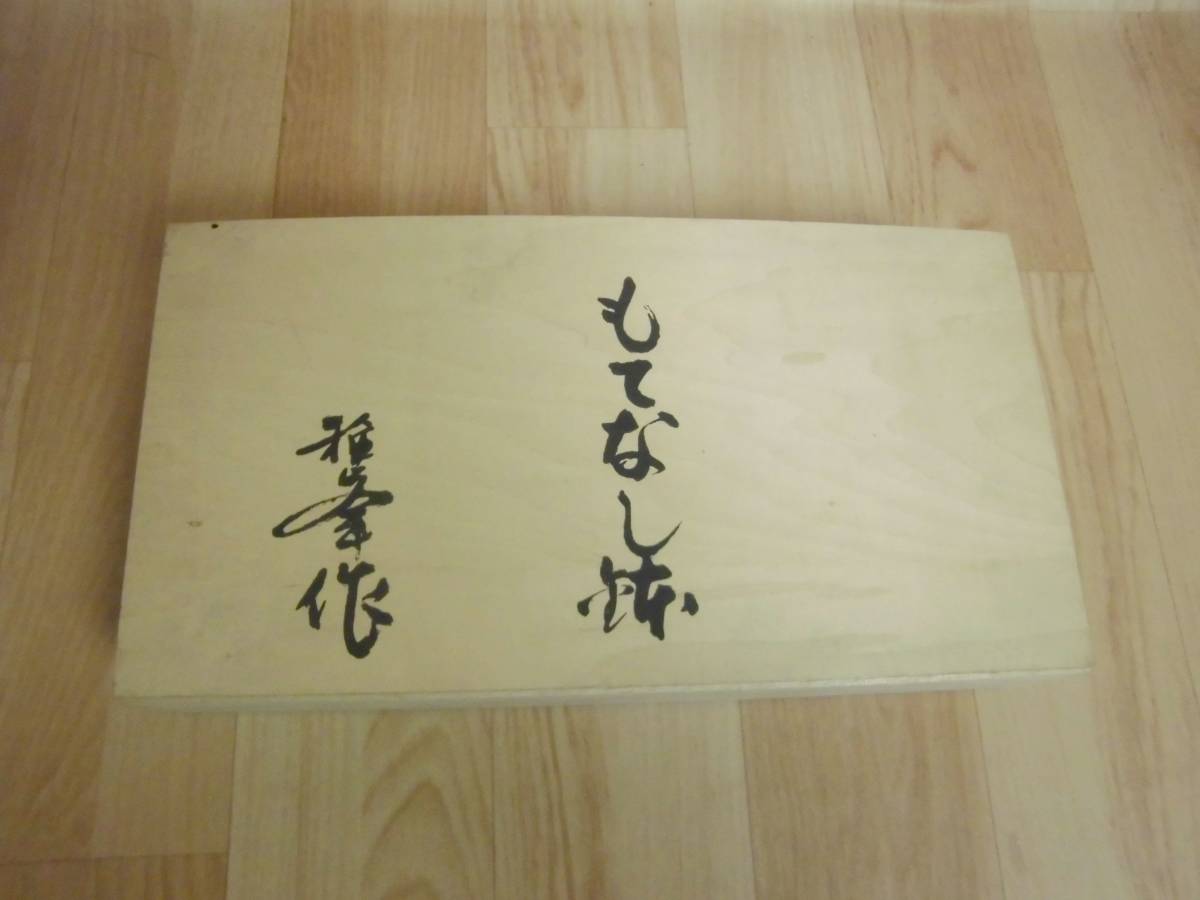 もてなし鉢
雅峯作